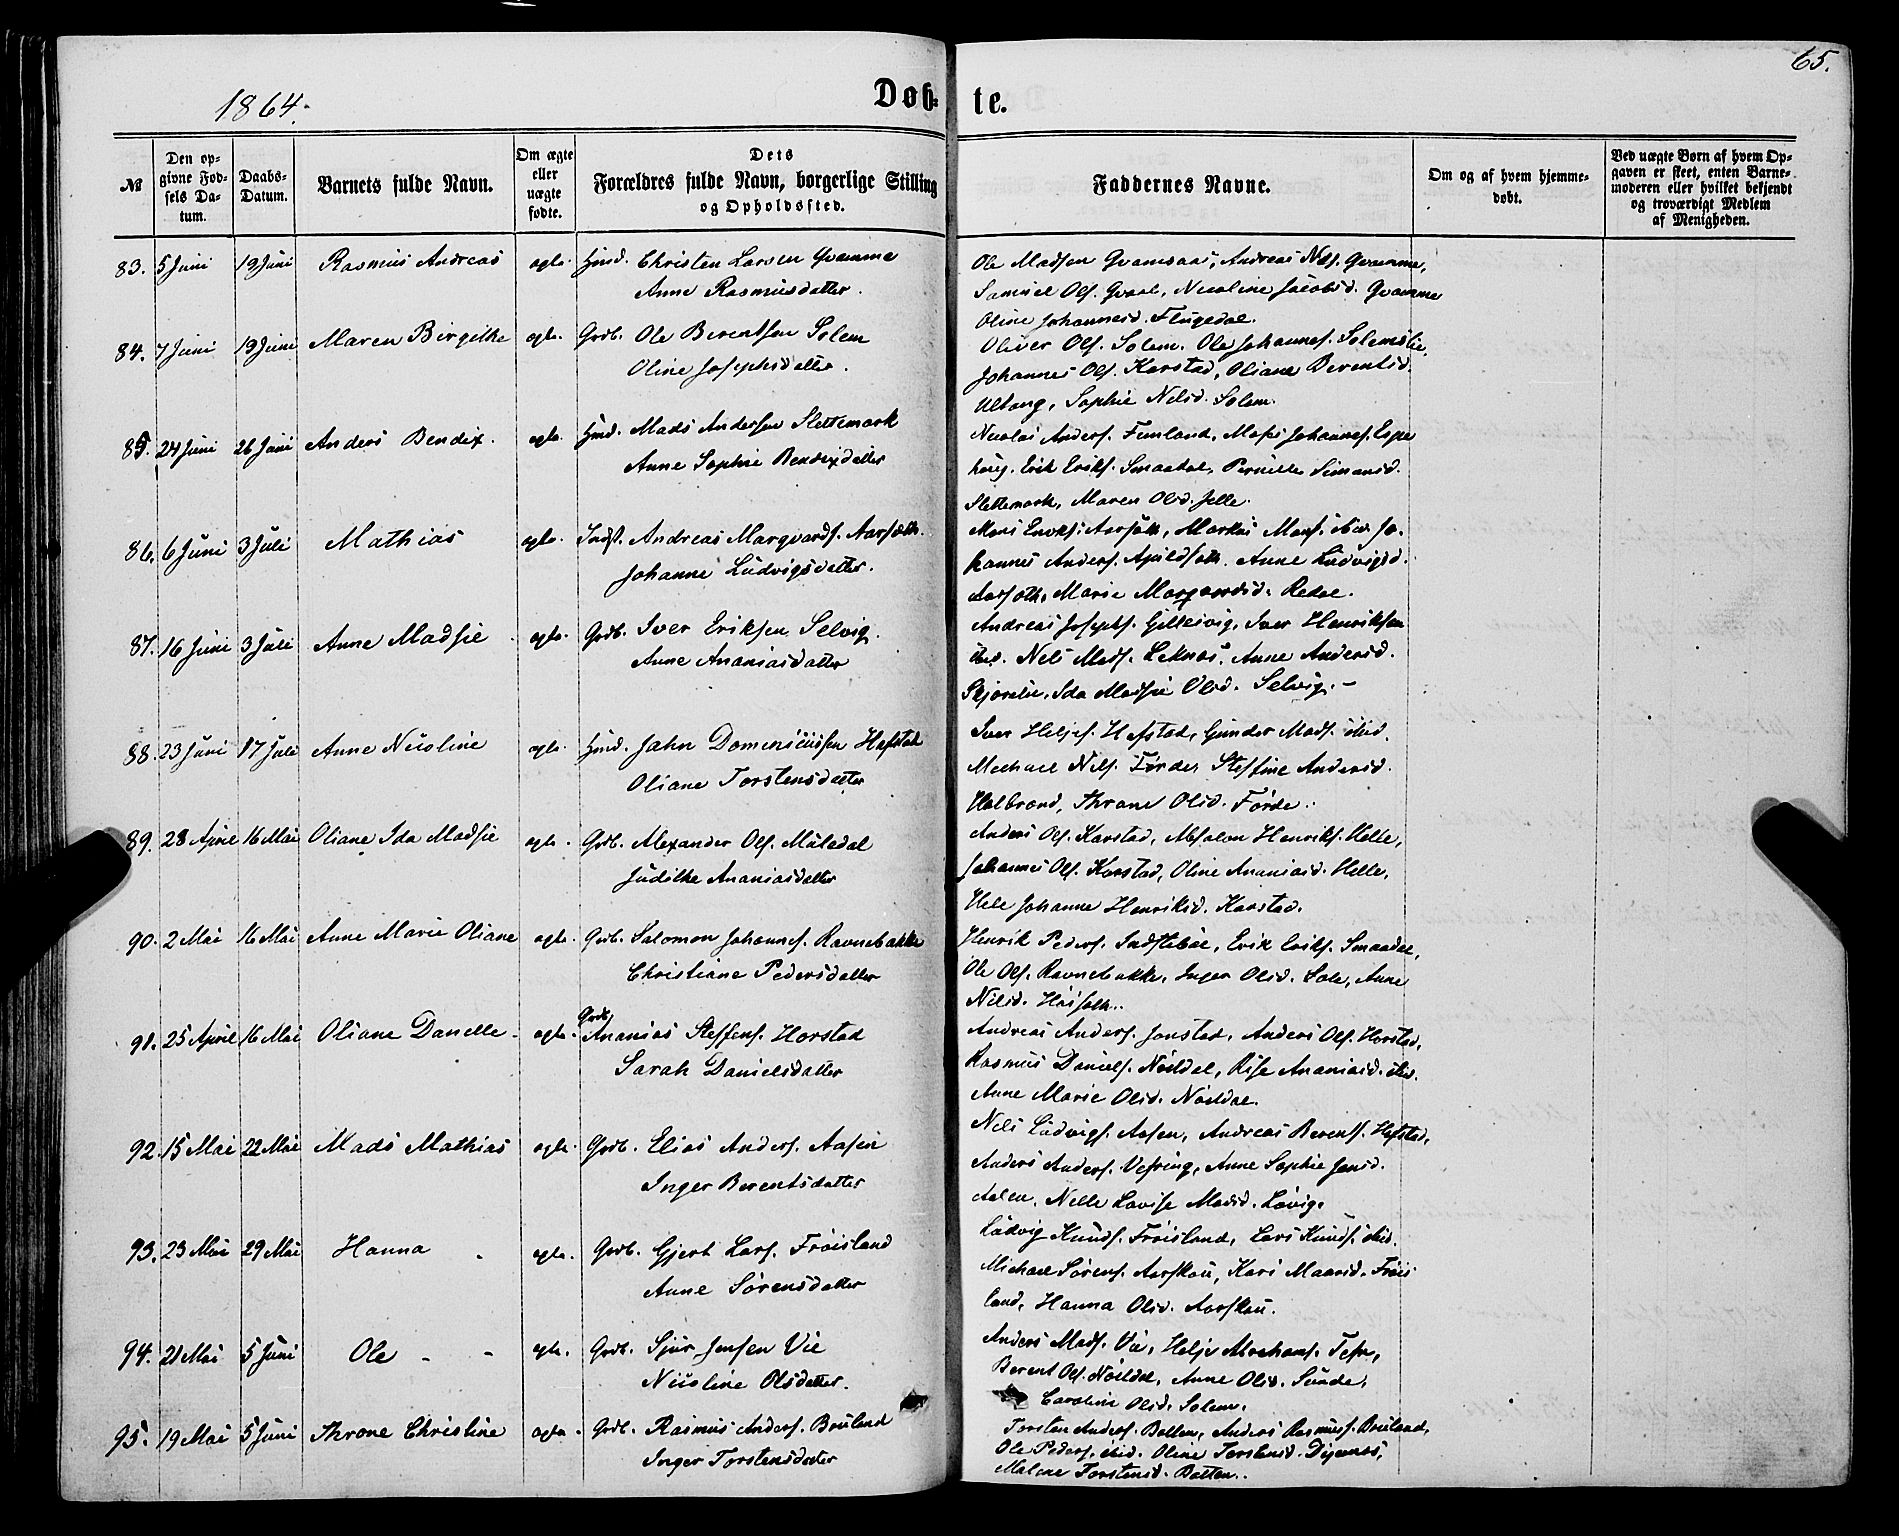 65.
1864.
Døb-te.
№
Den opgivne Fødsels Datum.
Daabs-Datum.
Barnets fulde Navn.
Om ægte eller uægte fødte.
Dets Forældres fulde Navn, borgerlige Stilling og Opholdssted.
Faddernes Navne.
Om og af hvem hjemmedøbt.
Ved uægte Børn af hvem Opgaven er skeet, enten Barnemoderen eller hvilket bekjendt og troværdigt Medlem af Menigheden.
83. 5 Juni 19 Juni Rasmus Andreas ægte. Hmd. Christen Larsen Qvamme
Anne Rasmusdatter.
Ole Madsen Qvamsaas, Andreas Nils. Qvamme,
Samuel Ols. Qvaal, Nicoline Jacobsd. Qvamme
Oline Johannesd. Flugedal.
84. 7 Juni 19 Juni Maren Birgithe ægte. Grdb. Ole Berentsen Solem
Oline Josephsdatter.
Oliver Ols. Solem. Ole Johannes. Solemslie,
Johannes Ols. Karstad, Oliane Berentsd.
Ultang, Sophie Nilsd. Solem.
85. 24 Juni 26 Juni Anders Bendix. ægte. Hmd. Mads Andersen Slettemark
Anne Sophie Bendixdatter
Nicolai Anders. Funland, Moses Johannes. Espe
houg. Erik Eriks. Smaadal, Pernille Simonsd.
Slettemark, Maren Olsd. Jelle.
86. 6 Juni 3 Juli Mathias ægte. Indst. Andreas Marqvards. Aarsæth.
Johanne Ludvigsdatter.
Anders. Apildseth. Anne Ludvigsd.
Marie Marqvardsd. Redal.
87. 16 Juni 3 Juli Anne Madsie ægte. Grdb. Iver Eriksen Selvig.
Anne Ananiasdatter
Andreas Josephs. Gjelesvig, Iver Henriksen
ibid. Nils Mads. Leknæs. Anne Andersd.
Ida Madsie Olsd. Selvig. -
88. 23 Juni 17 Juli Anne Nicoline ægte. Hmd. Jahn Dominicusen Hafstad
Oliane Torstensdatter
Iver Heljes. Hafstad, Gunder Mads. ibid.
Michael Nils. Førde, Steffine Andersd.
Halbrend, Throne Olsd. Førde.
89. 28 April 16 Mai Oliane Ida Madsie ægte. Grdb. Alexander Ols. Muledal
Judithe Ananiasdatter
Anders Ols. Karstad, Absalon Henriks. Helle,
Johannes Ols. Karstad, Oline Ananiasd. Helle,
Johanne Henriksd. Karstad.
90. 2 Mai 16 Mai Anne Marie Oliane ægte. Grdb. Salomon Johannes. Ravnebakke
Christiane Pedersdatter
Henrik Peders. Indstebøe, Erik Eriks. Smaadal,
Ole Ols. Ravnebakke, Inger Olsd. Sole, Anne
Nilsd. Høiseth.
91. 25 April 16 Mai Oliane Danelle ægte. Grdb. Ananias Steffens. Horstad
Sarah Danielsdatter
Andreas Anders. Jonstad, Anders Ols. Horstad,
Rasmus Daniels. Nøsdal, Rise Ananiasd. ibid.
Anne Marie Olsd. Nøsdal.
92. 15 Mai 22 Mai Mads Mathias ægte. Grdb. Elias Anders. Aasen
Inger Berentsdatter
Nils Ludvigs. Aasen, Andreas Berents. Hafstad,
Anders Anders. Vefring, Anne Sophie Jensd.
Aasen, Nelle Lovise Madsd. Løvig.
93. 23 Mai 29 Mai Hanna ægte. Grdb. Gjert Lars. Frøisland
Anne Sørensdatter
Ludvig Knuds. Frøisland, Lars Knuds. ibid.
Michael Sørens. Aarskou, Kari Madsd. Frøis
land, Hanna Olsd. Aarskou.
94. 21 Mai 5 Juni Ole - - ægte. Grdb. Sjur Jensen Vie
Nicoline Olsdatter.
Anders Mads. Vie, Helje
Berent Ols. Nøsdal, Anne Olsd. Sunde,
Caroline Olsd. Solem.
95. 19 Mai 5 Juni Throne Christine ægte. Grdb. Rasmus Anders. Bruland
Inger Torstensdatter
Torsten Anders. Botten, Anders Rasmus. Bruland,
Ole Peders. ibid. Oline Torstensd. Digernæs,
Malene Torstensd. Botten.